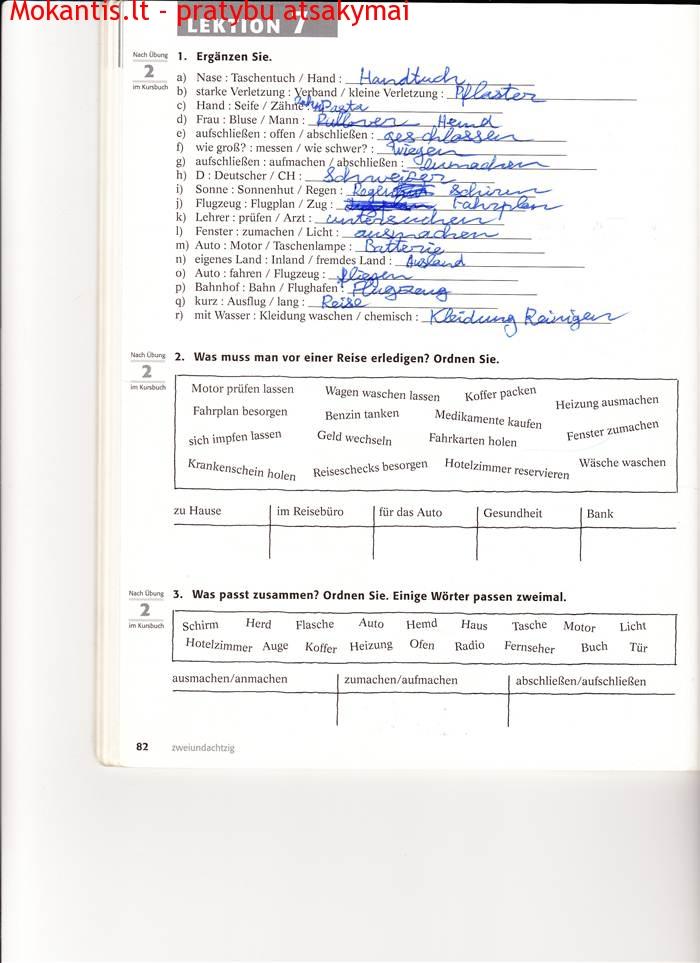 Mokantis.lt - pratybu atsakymai
LEKTION 7
Nach Übung
2
im Kursbuch
1. Ergänzen Sie.
a) Nase : Taschentuch / Hand : Handtuch
b) starke Verletzung : Verband / kleine Verletzung : Pflaster
c) Hand : Seife / Zähne : Zahn Pasta
d) Frau : Bluse / Mann : Pullover Hemd
e) aufschließen : offen / abschließen : geschlossen
f) wie groß? : messen / wie schwer? : wiegen
g) aufschließen : aufmachen / abschließen : zumachen
h) D : Deutscher / CH : Schweizer
i) Sonne : Sonnenhut / Regen : Regen Schirm
j) Flugzeug : Flugplan / Zug : Fahrplan
k) Lehrer : prüfen / Arzt : untersuchen
l) Fenster : zumachen / Licht : ausmachen
m) Auto : Motor / Taschenlampe : Batterie
n) eigenes Land : Inland / fremdes Land : Ausland
o) Auto : fahren / Flugzeug : fliegen
p) Bahnhof : Bahn / Flughafen : Flugzeug
q) kurz : Ausflug / lang : Reise
r) mit Wasser : Kleidung waschen / chemisch : Kleidung Reinigen
Nach Übung
2
im Kursbuch
2. Was muss man vor einer Reise erledigen? Ordnen Sie.
Motor prüfen lassen Wagen waschen lassen Koffer packen Heizung ausmachen
Fahrplan besorgen Benzin tanken Medikamente kaufen Fenster zumachen
sich impfen lassen Geld wechseln Fahrkarten holen
Krankenschein holen Reiseschecks besorgen Hotelzimmer reservieren Wäsche waschen
zu Hause im Reisebüro für das Auto Gesundheit Bank
Nach Übung
2
im Kursbuch
3. Was passt zusammen? Ordnen Sie. Einige Wörter passen zweimal.
Schirm Herd Flasche Auto Hemd Haus Tasche Motor Licht
Hotelzimmer Auge Koffer Heizung Ofen Radio Fernseher Buch Tür
ausmachen/anmachen zumachen/aufmachen abschließen/aufschließen
82 zweiundachtzig